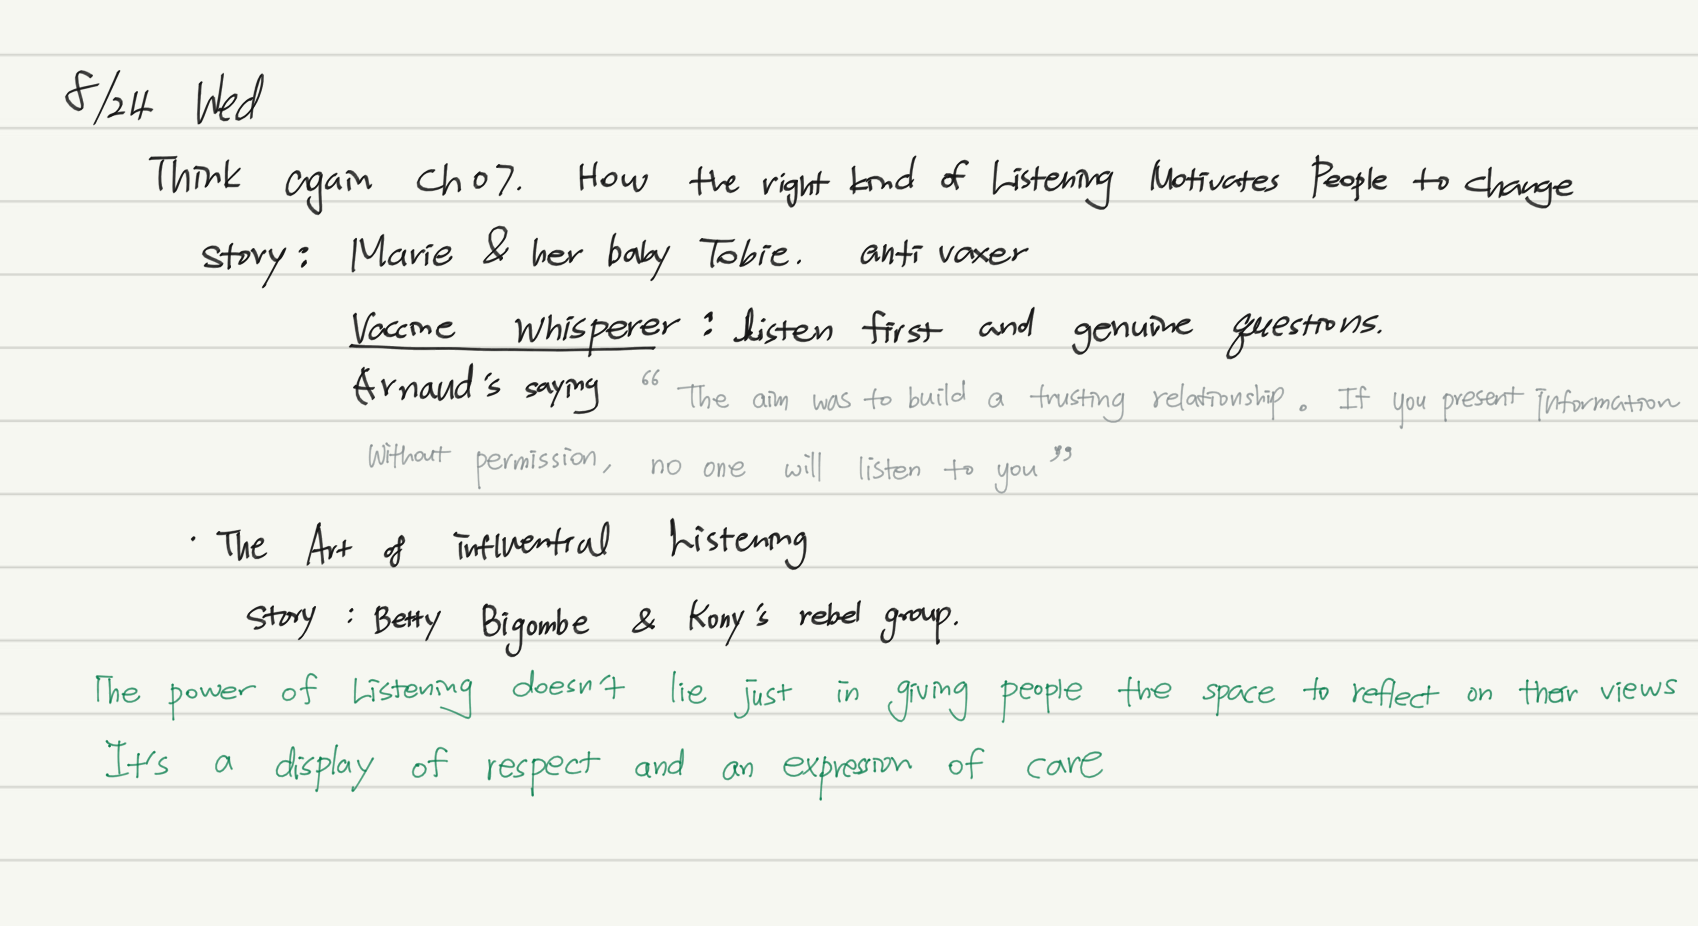 8/24 Wed
Think again Ch 07. How the right kind of Listening Motivates People to change
Story: Marie & her baby Tobie. anti vaxer
Vaccine Whisperer: listen first and genuine questions.
Arnaud's saying “The aim was to build a trusting relationship. If you present information
Without permission, no one will listen to you”
· The Art of influential Listening
Story: Betty Bigombe & Kony's rebel group.
The power of Listening doesn't lie just in giving people the space to reflect on their views
It's a display of respect and an expression of care